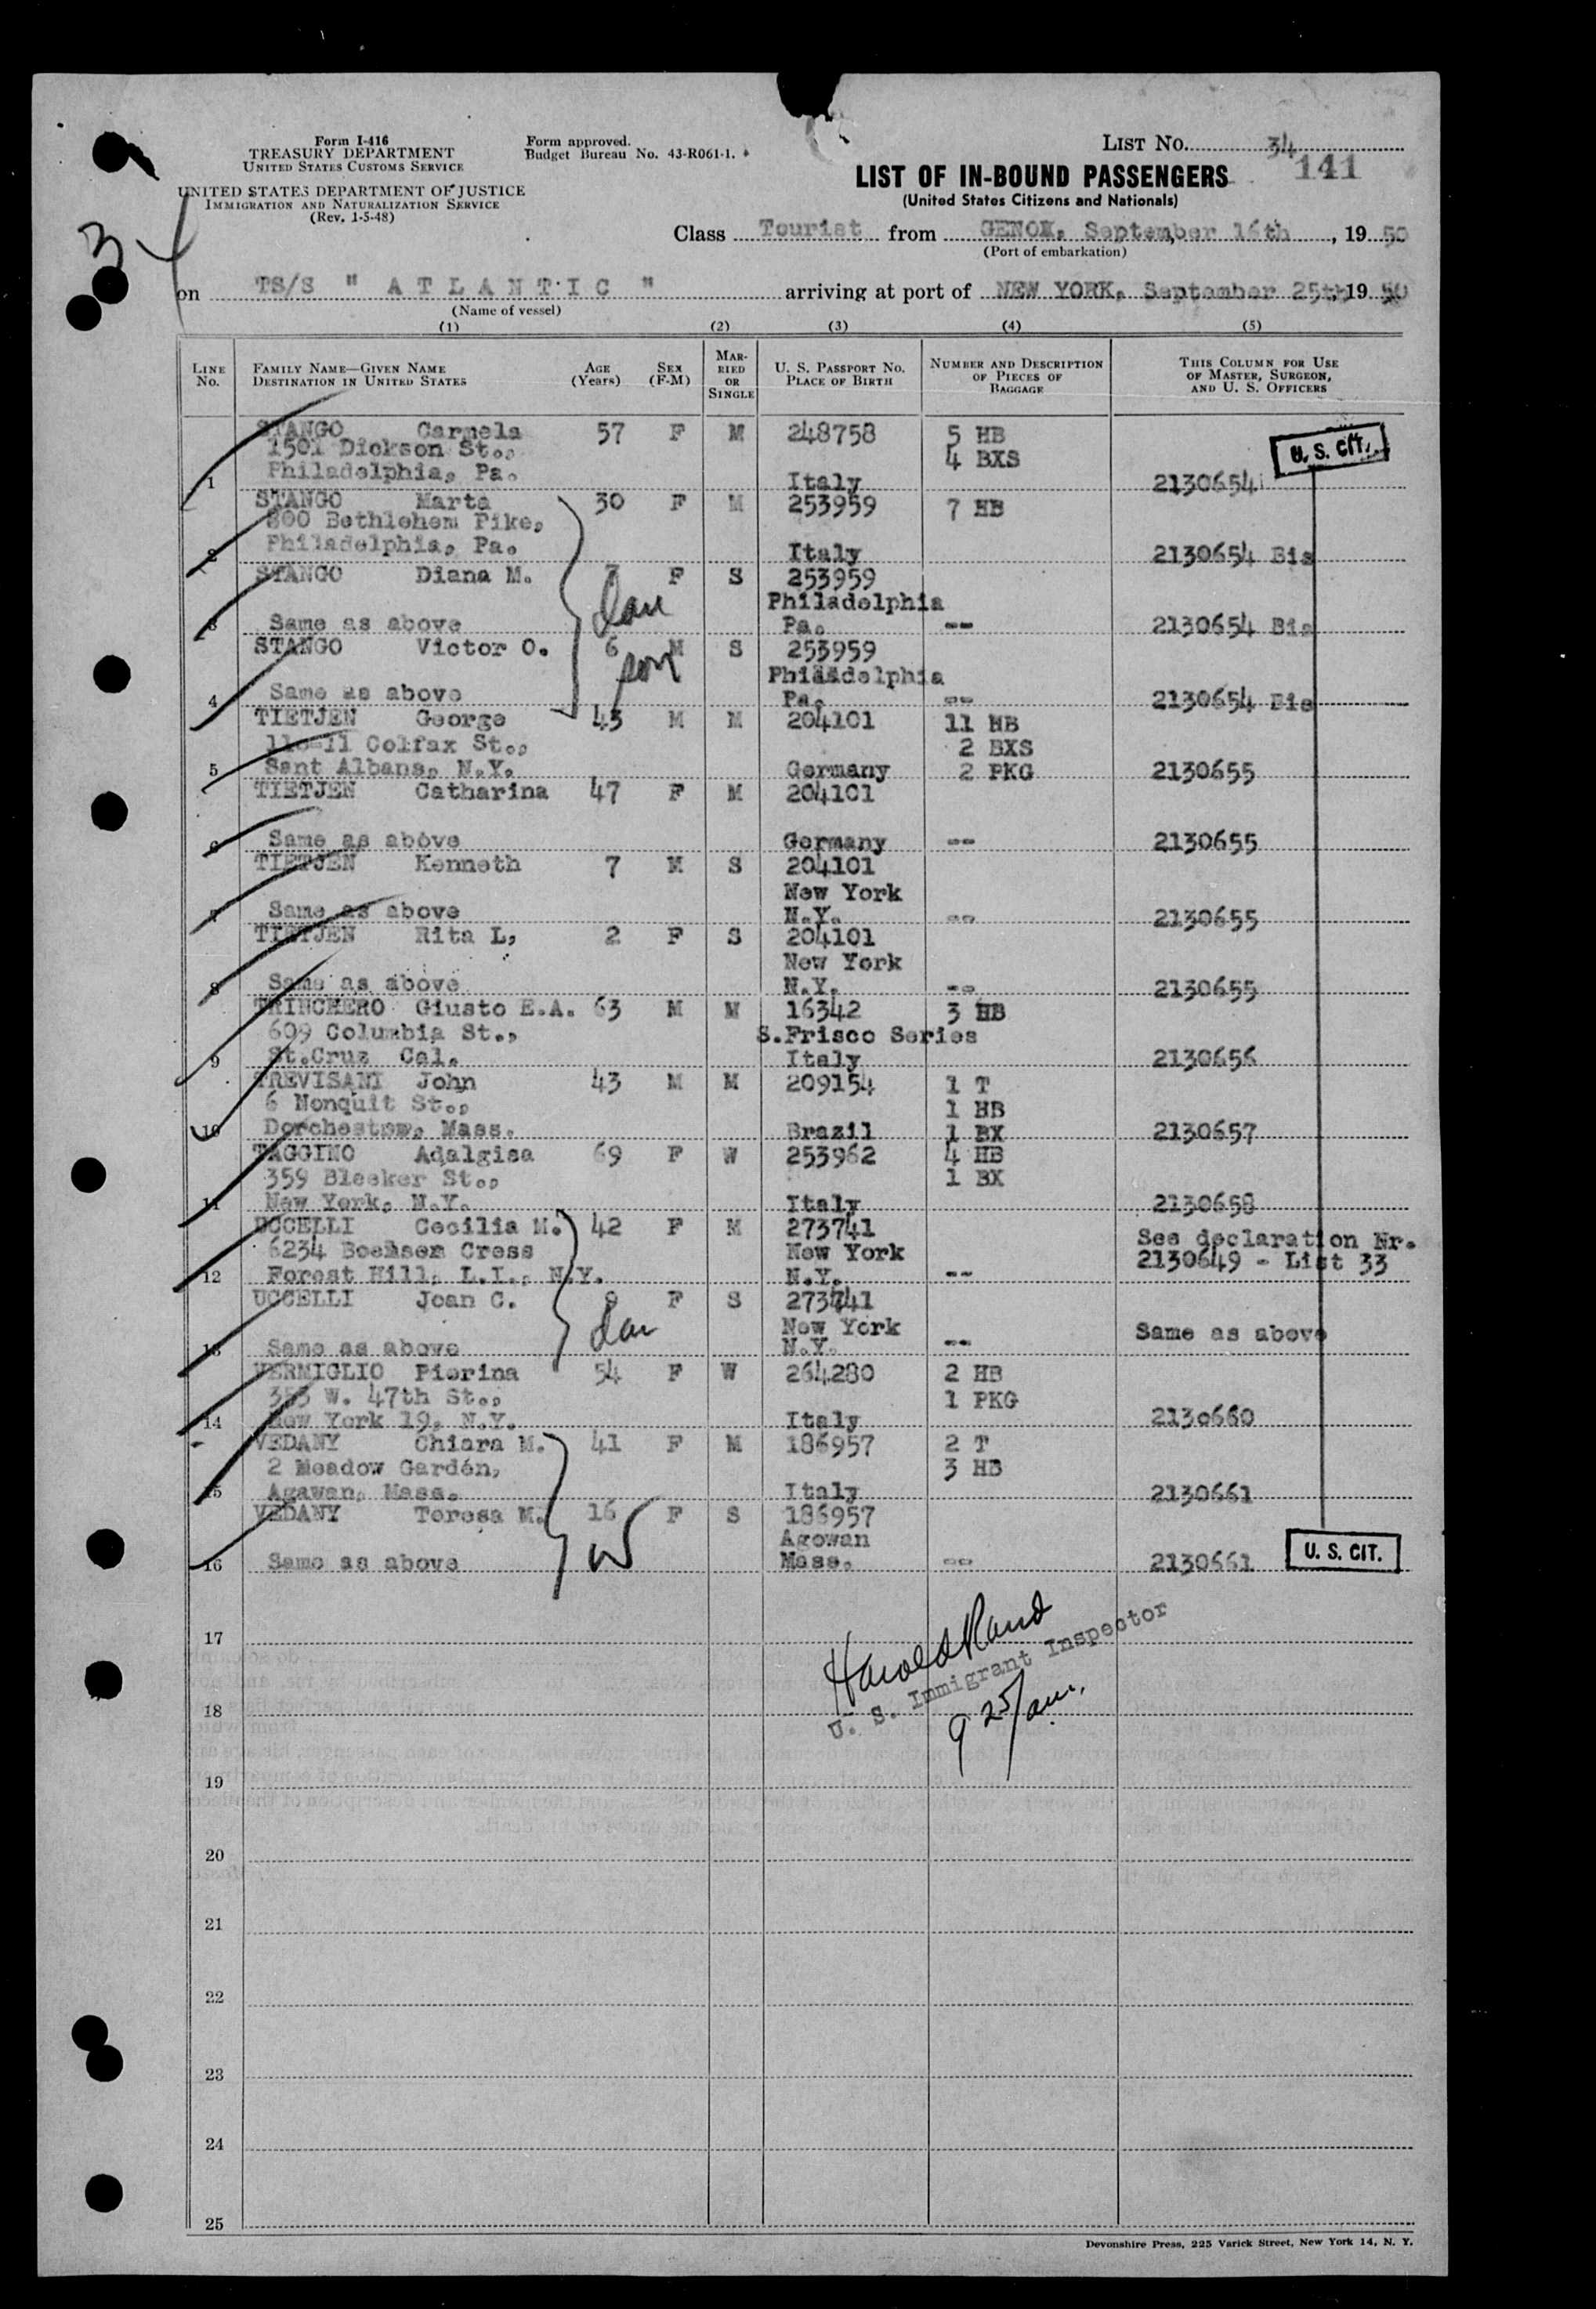 Form I-416
TREASURY DEPARTMENT
UNITED STATES CUSTOMS SERVICE
UNITED STATES DEPARTMENT OF JUSTICE
IMMIGRATION AND NATURALIZATION SERVICE
(Rev. 1-5-48)
Form approved.
Budget Bureau No. 43-R061-1.
LIST NO. 34
141
LIST OF IN-BOUND PASSENGERS
(United States Citizens and Nationals)
3
Class Tourist from GENOA, September 16th, 1950
(Port of embarkation)
on TS/S " A T L A N T I C " arriving at port of NEW YORK, September 25th 1950
(Name of vessel)
(1) (2) (3) (4) (5)
LINE NO.
FAMILY NAME—GIVEN NAME
DESTINATION IN UNITED STATES
AGE (Years)
SEX (F-M)
MARRIED OR SINGLE
U. S. PASSPORT NO.
PLACE OF BIRTH
NUMBER AND DESCRIPTION OF PIECES OF BAGGAGE
THIS COLUMN FOR USE OF MASTER, SURGEON, AND U. S. OFFICERS
STANGO Carmela 57 F M 248758 5 HB U. S. CIT.
1501 Dickson St., 4 BXS
1 Philadelphia, Pa. Italy 2130654
STANGO Marta 30 F M 253959 7 HB
800 Bethlehem Pike,
2 Philadelphia, Pa. Italy 2130654 Bis
STANGO Diana M. 7 F S 253959
dau
Philadelphia
3 Same as above Pa. -- 2130654 Bis
STANGO Victor O. 6 M S 253959
son
Philadelphia
4 Same as above Pa. -- 2130654 Bis
TIETJEN George 43 M M 204101 11 HB
118-11 Colfax St., 2 BXS
5 Sant Albans, N.Y. Germany 2 PKG 2130655
TIETJEN Catharina 47 F M 204101
6 Same as above Germany -- 2130655
TIETJEN Kenneth 7 M S 204101
New York
7 Same as above N.Y. -- 2130655
TIETJEN Rita L, 2 F S 204101
New York
8 Same as above N.Y. -- 2130655
TRINCHERO Giusto E.A. 63 M M 16342 3 HB
609 Columbia St., S.Frisco Series
9 St.Cruz Cal. Italy 2130656
TREVISANI John 43 M M 209154 1 T
6 Nonquit St., 1 HB
10 Dorchester, Mass. Brazil 1 BX 2130657
TAGGINO Adalgisa 69 F W 253962 4 HB
359 Bleeker St., 1 BX
11 New York, N.Y. Italy 2130658
UCCELLI Cecilia M. 42 F M 273741 See declaration Nr.
6234 Cress New York 2130649 - List 33
12 Forest Hill, L.I., N.Y. N.Y. --
UCCELLI Joan C. 9 F S 273741
dau
New York Same as above
13 Same as above N.Y. --
VERMIGLIO Pierina 54 F W 264280 2 HB
353 W. 47th St., 1 PKG
14 New York 19, N.Y. Italy 2130660
VEDANY Chiara M. 41 F M 186957 2 T
2 Meadow Gardén, 3 HB
15 Agawan, Mass. Italy 2130661
VEDANY Teresa M. 16 F S 186957
Agowan
16 Same as above Mass. -- 2130661 U. S. CIT.
Harold Rand
U. S. Immigrant Inspector
9 25/am.
17
18
19
20
21
22
23
24
25
Devonshire Press, 225 Varick Street, New York 14, N. Y.